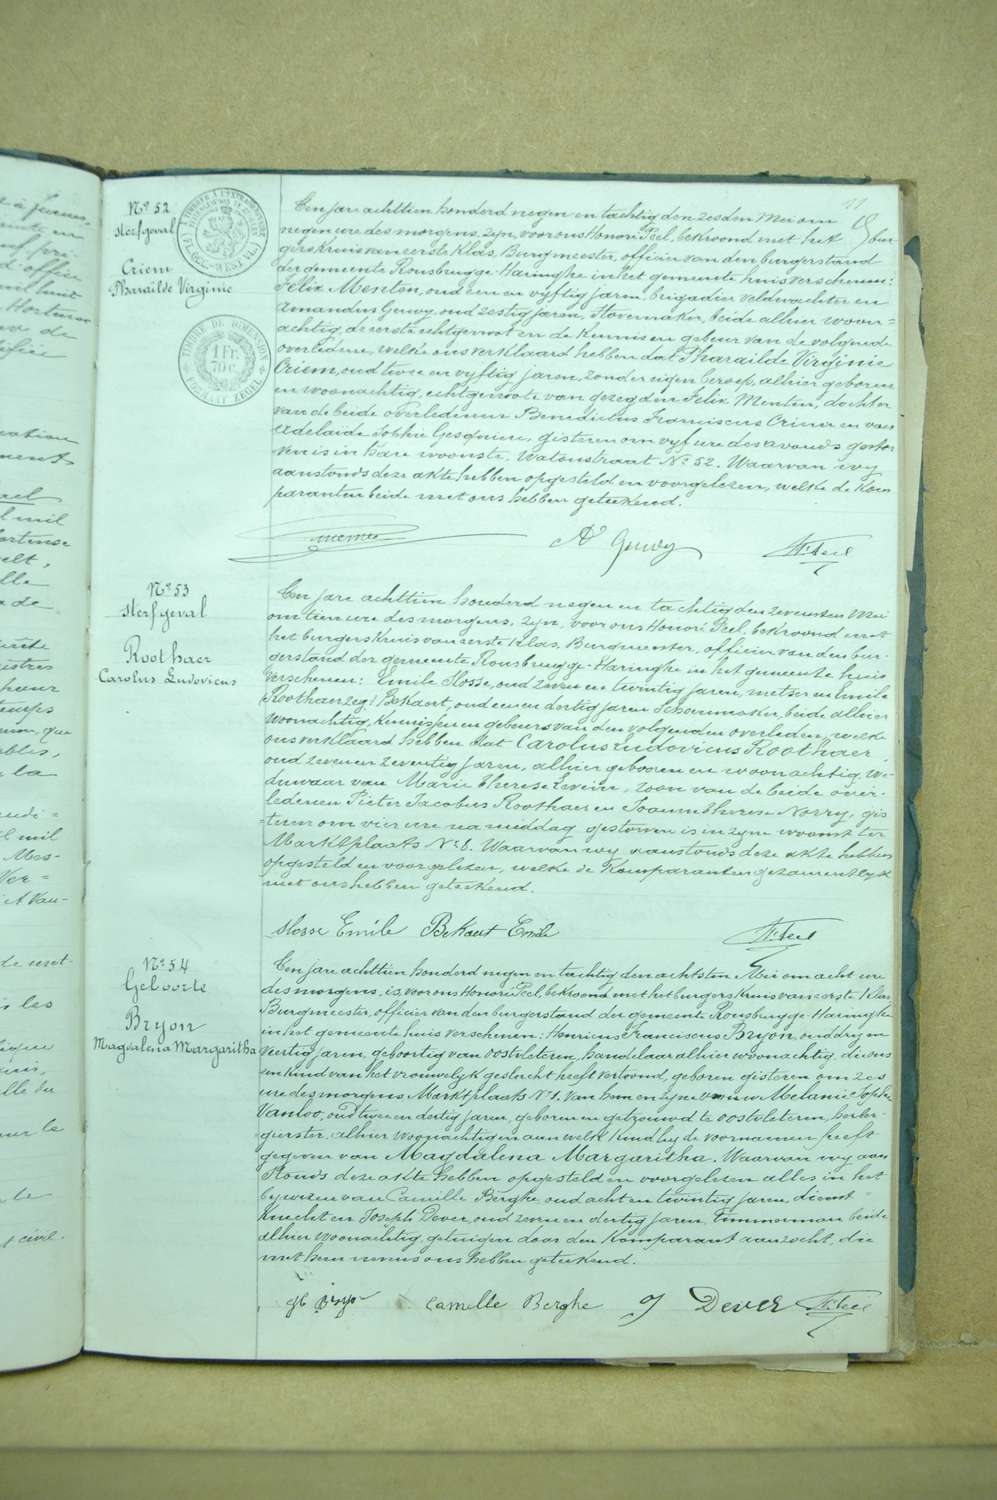 11
Nº 52
sterfgeval
Criem
Pharaïlde Virginie
TIMBRE DE DIMENSION
1 Fr. 70 c.
FORMAAT ZEGEL
Een jare achttien honderd negen en tachtig den zesden Mei om
negen ure des morgens, zyn, voor ons Honoré Peel, bekroond met het bur-
gerskruis van eerste klas, Burgmeester, officier van den burgerstand
der gemeente Rousbrugge-Haringhe in het gemeente huis verschenen:
Felix Menten, oud een en vyftig jaren, brigadier veldwachter en
Amandus Gewy, oud zestig jaren, stovenmaker, beide alhier woon=
achtig, de eerste echtgenoot en de kennis en gebeur van de volgende
overledene, welke ons verklaard hebben dat Pharaïlde Virginie
Criem, oud twee en vyftig jaren, zonder eigen beroep, alhier geboren
en woonachtig, echtgenote van gezegden Felix Menten, dochter
van de beide overledenen Benedictus Franciscus Criem en van
Adelaïde Sophie Gesquiere, gisteren om vyf ure des avonds gestor
ven is in hare woonste, Watoustraat Nº 52. Waarvan wy
aanstonds deze akte hebben opgesteld en voorgelezen, welke de Kom
paranten beide met ons hebben geteekend.
A Gewy
H. Peel
Nº 53
sterfgeval
Roothaer
Carolus Ludovicus
Een jare achttien honderd negen en tachtig den zevensten Mei
om tien ure des morgens, zyn, voor ons Honoré Peel, bekroond met
het burgerskruis van eerste klas, Burgmeester, officier van den bur-
gerstand der gemeente Rousbrugge-Haringhe in het gemeente huis
verschenen: Emile Hosse, oud zeven en twintig jaren, metser en Emile
Roothaer zegd Bekaert, oud een en dertig jaren Schoenmaker, beide alhier
woonachtig, kennissen en gebeurs van den volgenden overleden, welke
ons verklaard hebben dat Carolus Ludovicus Roothaer,
oud zeven en zeventig jaren, alhier geboren en woonachtig, we-
duwaar van Marie Therese, zoon van de beide over-
ledenen Pieter Jacobus Roothaer en Joanna Therese Norry, gis
=teren om vier ure na middag gestorven is in zyne woonst ter
Marktplaats Nº 6. Waarvan wy aanstonds deze akte hebben
opgesteld en voorgelezen, welke de Komparanten gezamentlyk
met ons hebben geteekend.
Hosse Emile Bekaert Emile
H. Peel
Nº 54
Geboorte
Bryon
Magdalena Margaritha
Een jare achttien honderd negen en tachtig den achtsten Mei om acht ure
des morgens, is, voor ons Honoré Peel, bekroond met het burgerskruis van eerste klas
Burgmeester, officier van den burgerstand der gemeente Rousbrugge-Haringhe
in het gemeente huis verschenen: Henricus Franciscus Bryon, oud dry en
veertig jaren, geboortig van Oostvleteren, handelaar alhier woonachtig, die ons
een kind van het vrouwelyk geslacht heeft vertoond, geboren gisteren om zes
ure des morgens, Marktplaats Nº 1, van hem en zyne vrouw Melanie Sophie
Vanloo, oud twee en dertig jaren, geboren en getrouwd te Oostvleteren, herber-
gierster, alhier woonachtig en aan welk kind hy de voornamen heeft
gegeven van Magdalena Margaritha. Waarvan wy aan
stonds deze akte hebben opgesteld en voorgelezen alles in het
bywezen van Camille Berghe oud acht en twintig jaren, dienst=
knecht en Joseph Dever, oud zeven en dertig jaren, Timmerman beide
alhier woonachtig, getuigen door den Komparant aanzocht, die
met hem en ons hebben geteekend.
H. Bryon Camille Berghe J Dever H. Peel